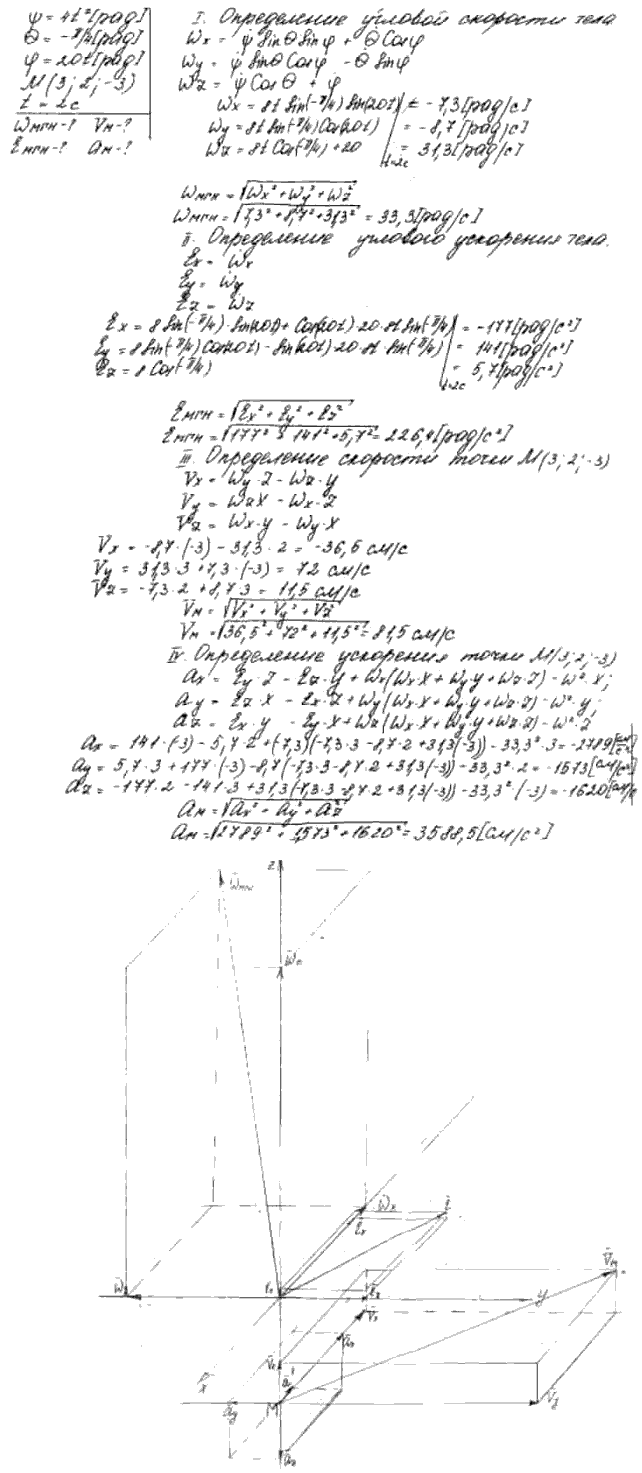 ψ = 4t² [рад]
Θ = -π/4 [рад]
φ = 20t [рад]
M (3; 2; -3)
t = 2c
ωмгн-? Vм-?
εмгн-? aм-?
I. Определение угловой скорости тела
ωx = ψ̇ sinΘ sinφ + Θ̇ cosφ
ωy = ψ̇ sinΘ cosφ - Θ̇ sinφ
ωz = ψ̇ cosΘ + φ̇
ωx = 8t sin(-π/4) sin(20t) = -7,3 [рад/с]
ωy = 8t sin(-π/4) cos(20t) = -8,7 [рад/с]
ωz = 8t cos(-π/4) + 20 |t=2c = 31,3 [рад/с]
ωмгн = √ωx² + ωy² + ωz²
ωмгн = √7,3² + 8,7² + 31,3² = 33,3 [рад/с]
II. Определение углового ускорения тела.
εx = ω̇x
εy = ω̇y
εz = ω̇z
εx = 8 sin(-π/4) · sin(20t) + cos(20t) · 20 · 8t sin(-π/4) = -177 [рад/с²]
εy = 8 sin(-π/4) cos(20t) - sin(20t) · 20 · 8t · sin(-π/4) = 141 [рад/с²]
εz = 8 cos(-π/4) |t=2c = 5,7 [рад/с²]
εмгн = √εx² + εy² + εz²
εмгн = √177² + 141² + 5,7² = 226,4 [рад/с²]
III. Определение скорости точки M (3; 2; -3)
Vx = ωy · z - ωz · y
Vy = ωz x - ωx · z
Vz = ωx · y - ωy · x
Vx = -8,7 · (-3) - 31,3 · 2 = -36,5 см/с
Vy = 31,3 · 3 + 7,3 · (-3) = 72 см/с
Vz = -7,3 · 2 + 8,7 · 3 = 11,5 см/с
Vм = √Vx² + Vy² + Vz²
Vм = √36,5² + 72² + 11,5² = 81,5 см/с
IV. Определение ускорения точки M (3; 2; -3)
ax = εy · z - εz · y + ωx (ωx · x + ωy · y + ωz · z) - ω² · x;
ay = εz · x - εx · z + ωy (ωx · x + ωy · y + ωz · z) - ω² · y;
az = εx · y - εy · x + ωz (ωx · x + ωy · y + ωz · z) - ω² · z
ax = 141 · (-3) - 5,7 · 2 + (7,3)(-7,3 · 3 - 8,7 · 2 + 31,3(-3)) - 33,3² · 3 = -2789 [см/с²]
ay = 5,7 · 3 + 177 · (-3) - 8,7 (-7,3 · 3 - 8,7 · 2 + 31,3(-3)) - 33,3² · 2 = -1573 [см/с²]
az = -177 · 2 - 141 · 3 + 31,3 (-7,3 · 3 - 8,7 · 2 + 31,3(-3)) - 33,3² · (-3) = -1620 [см/с²]
aм = √ax² + ay² + az²
aм = √2789² + 1573² + 1620² = 3588,5 [см/с²]
ωмгн
z
ωz
ωx
εx
ε
ωy
y
Vм
Vx
x
ay
M
Vy
az